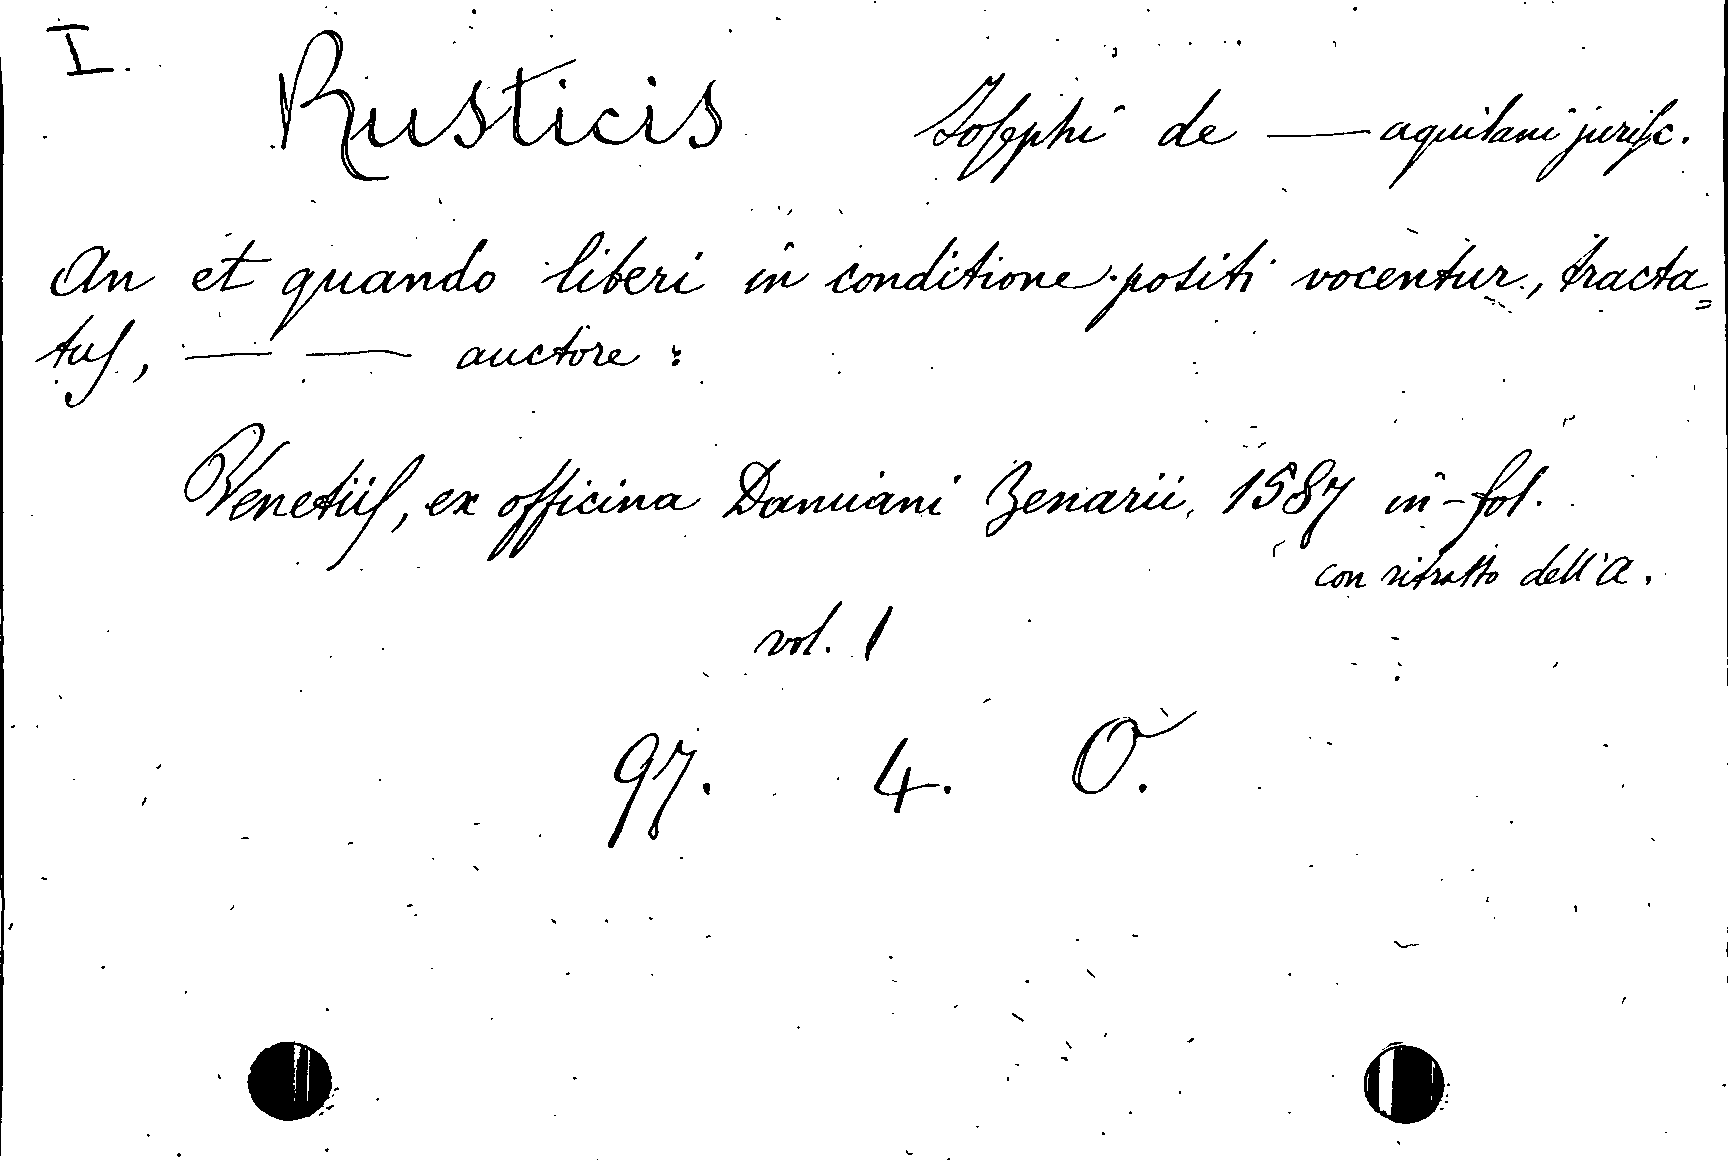 I.
Rusticis Iosephi de — aquilani jurisc.
An et quando liberi in conditione positi vocentur, tracta=
tus, — — auctore:
Venetiis, ex officina Damiani Zenarii, 1587 in-fol.
con ritratto dell'A.
vol. 1
97. 4. O.